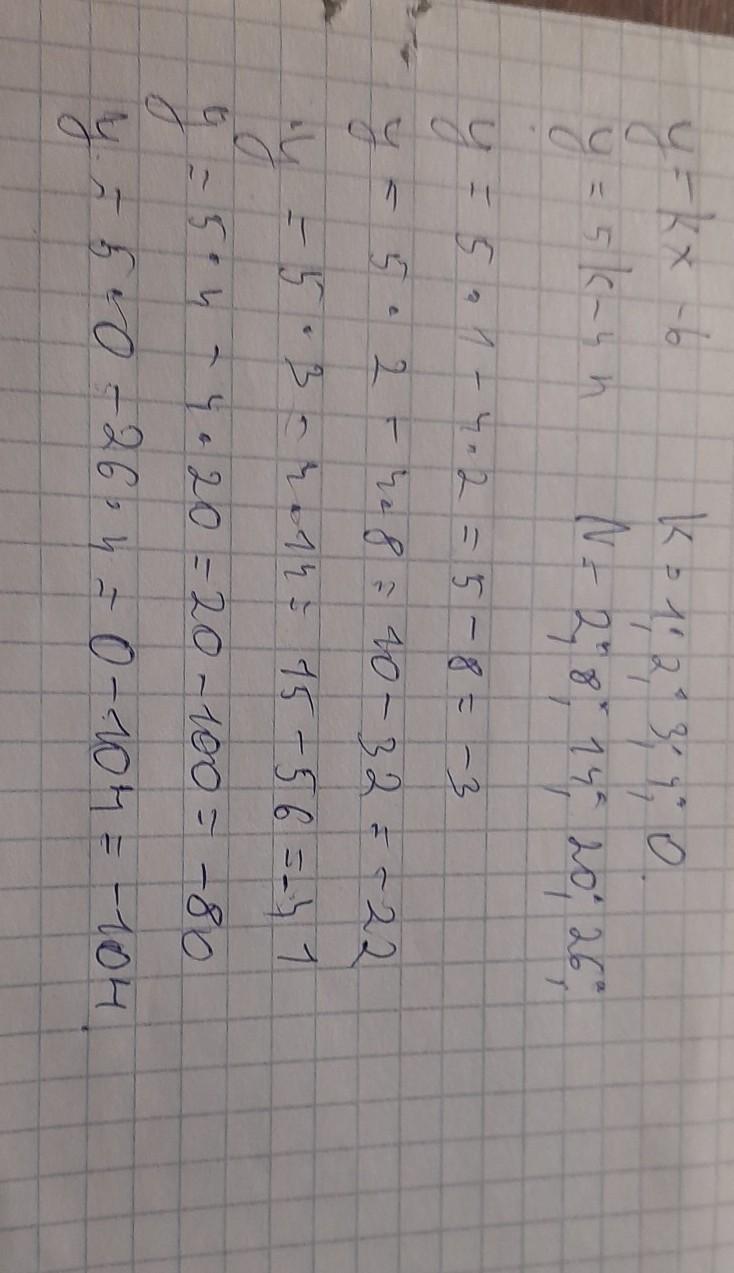 y = kx - b K = 1; 2; 3; 4; 0.
y = 5k - 4n N = 2; 8; 14; 20; 26;
y = 5 · 1 - 4 · 2 = 5 - 8 = -3
y = 5 · 2 - 4 · 8 = 10 - 32 = -22
y = 5 · 3 - 4 · 14 = 15 - 56 = -41
y = 5 · 4 - 4 · 20 = 20 - 100 = -80
y = 5 · 0 - 26 · 4 = 0 - 104 = -104.